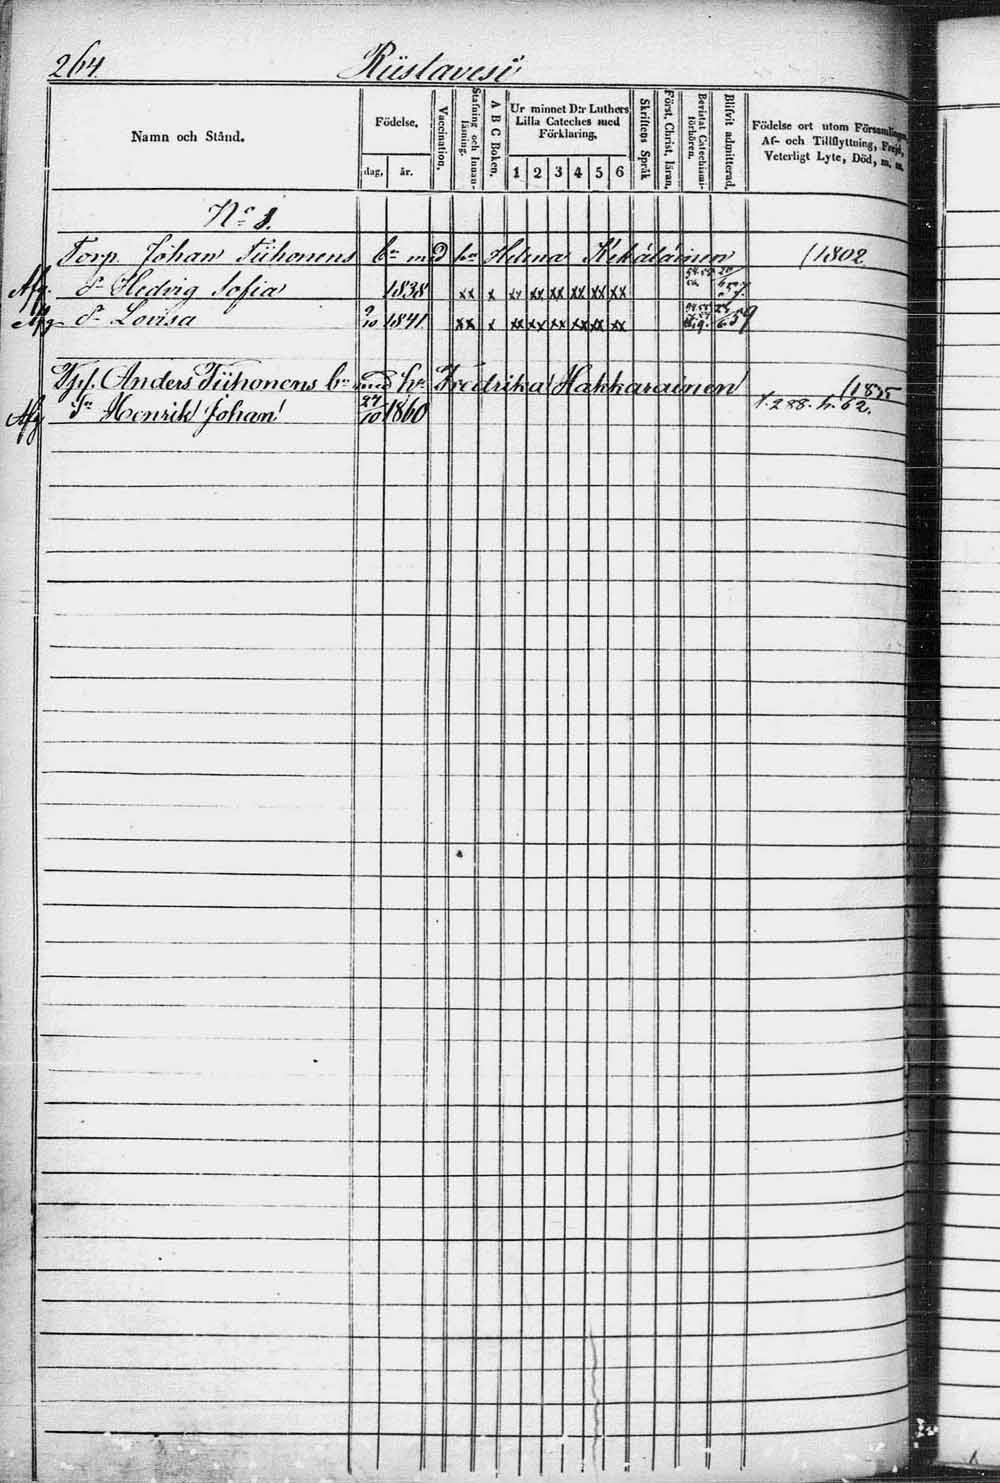 264. Riistavesi
Namn och Stånd.
Födelse,
dag, år.
Vaccination,
Stafning och Innanläsning.
A B C Boken,
Ur minnet D:r Luthers Lilla Cateches med Förklaring,
1 2 3 4 5 6
Skriftens Språk
Först. Christ. läran,
Bevistat Catechismiförhören.
Blifvit admitterad,
Födelse ort utom Församlingen,
Af- och Tillflyttning, Frejd,
Veterligt Lyte, Död, m. m.
No 1.
Torp. Johan Tiihonens bn med hu Helena Kekäläinen (1802
Afg. Dr Hedvig Sofia 1838 xx x xx xx xx xx xx xx
Afg. Dr Lovisa 9/10 1841 xx x xx xx xx xx xx xx 59
Tjf. Anders Tiihonens bn med hu Fredrika Hakkarainen (1835
Afg Sn Henrik Johan 27/10 1860 f. 288. fr. 62.